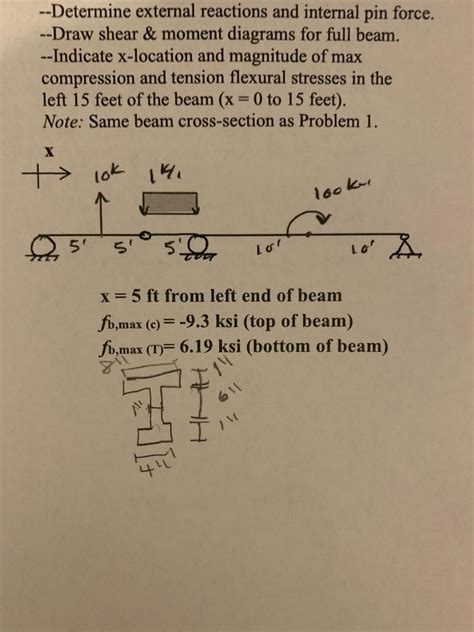 --Determine external reactions and internal pin force.
--Draw shear & moment diagrams for full beam.
--Indicate x-location and magnitude of max
compression and tension flexural stresses in the
left 15 feet of the beam (x = 0 to 15 feet).
Note: Same beam cross-section as Problem 1.
x
10k 1k/1
100k-1
5' 5' 5' 10' 10'
x = 5 ft from left end of beam
fb,max (c) = -9.3 ksi (top of beam)
fb,max (T)= 6.19 ksi (bottom of beam)
8"
1"
1" 6"
1"
4"